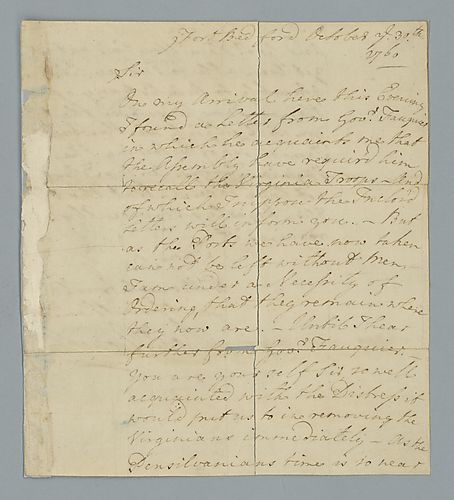 Fort Bedford October ye. 30th.
1760
Sir
On my Arrival here this Evening
I found a Letter from Govr. Fauquier
in which he acquaints me that
the Assembly have required him
to recall the Virginia Troops - And
of which I suppose the Inclosed
Letters will inform you. - But
as the Posts we have now taken
can not be left without Men,
I am under a Necessity of
Ordering, that they remain where
they now are. - Until I hear
further from Govr. Fauquier.
You are yourself Sir so well
acquainted with the Distress it
would put us to in removing the
Virginians immediately - As the
Pensilvanians time is so near